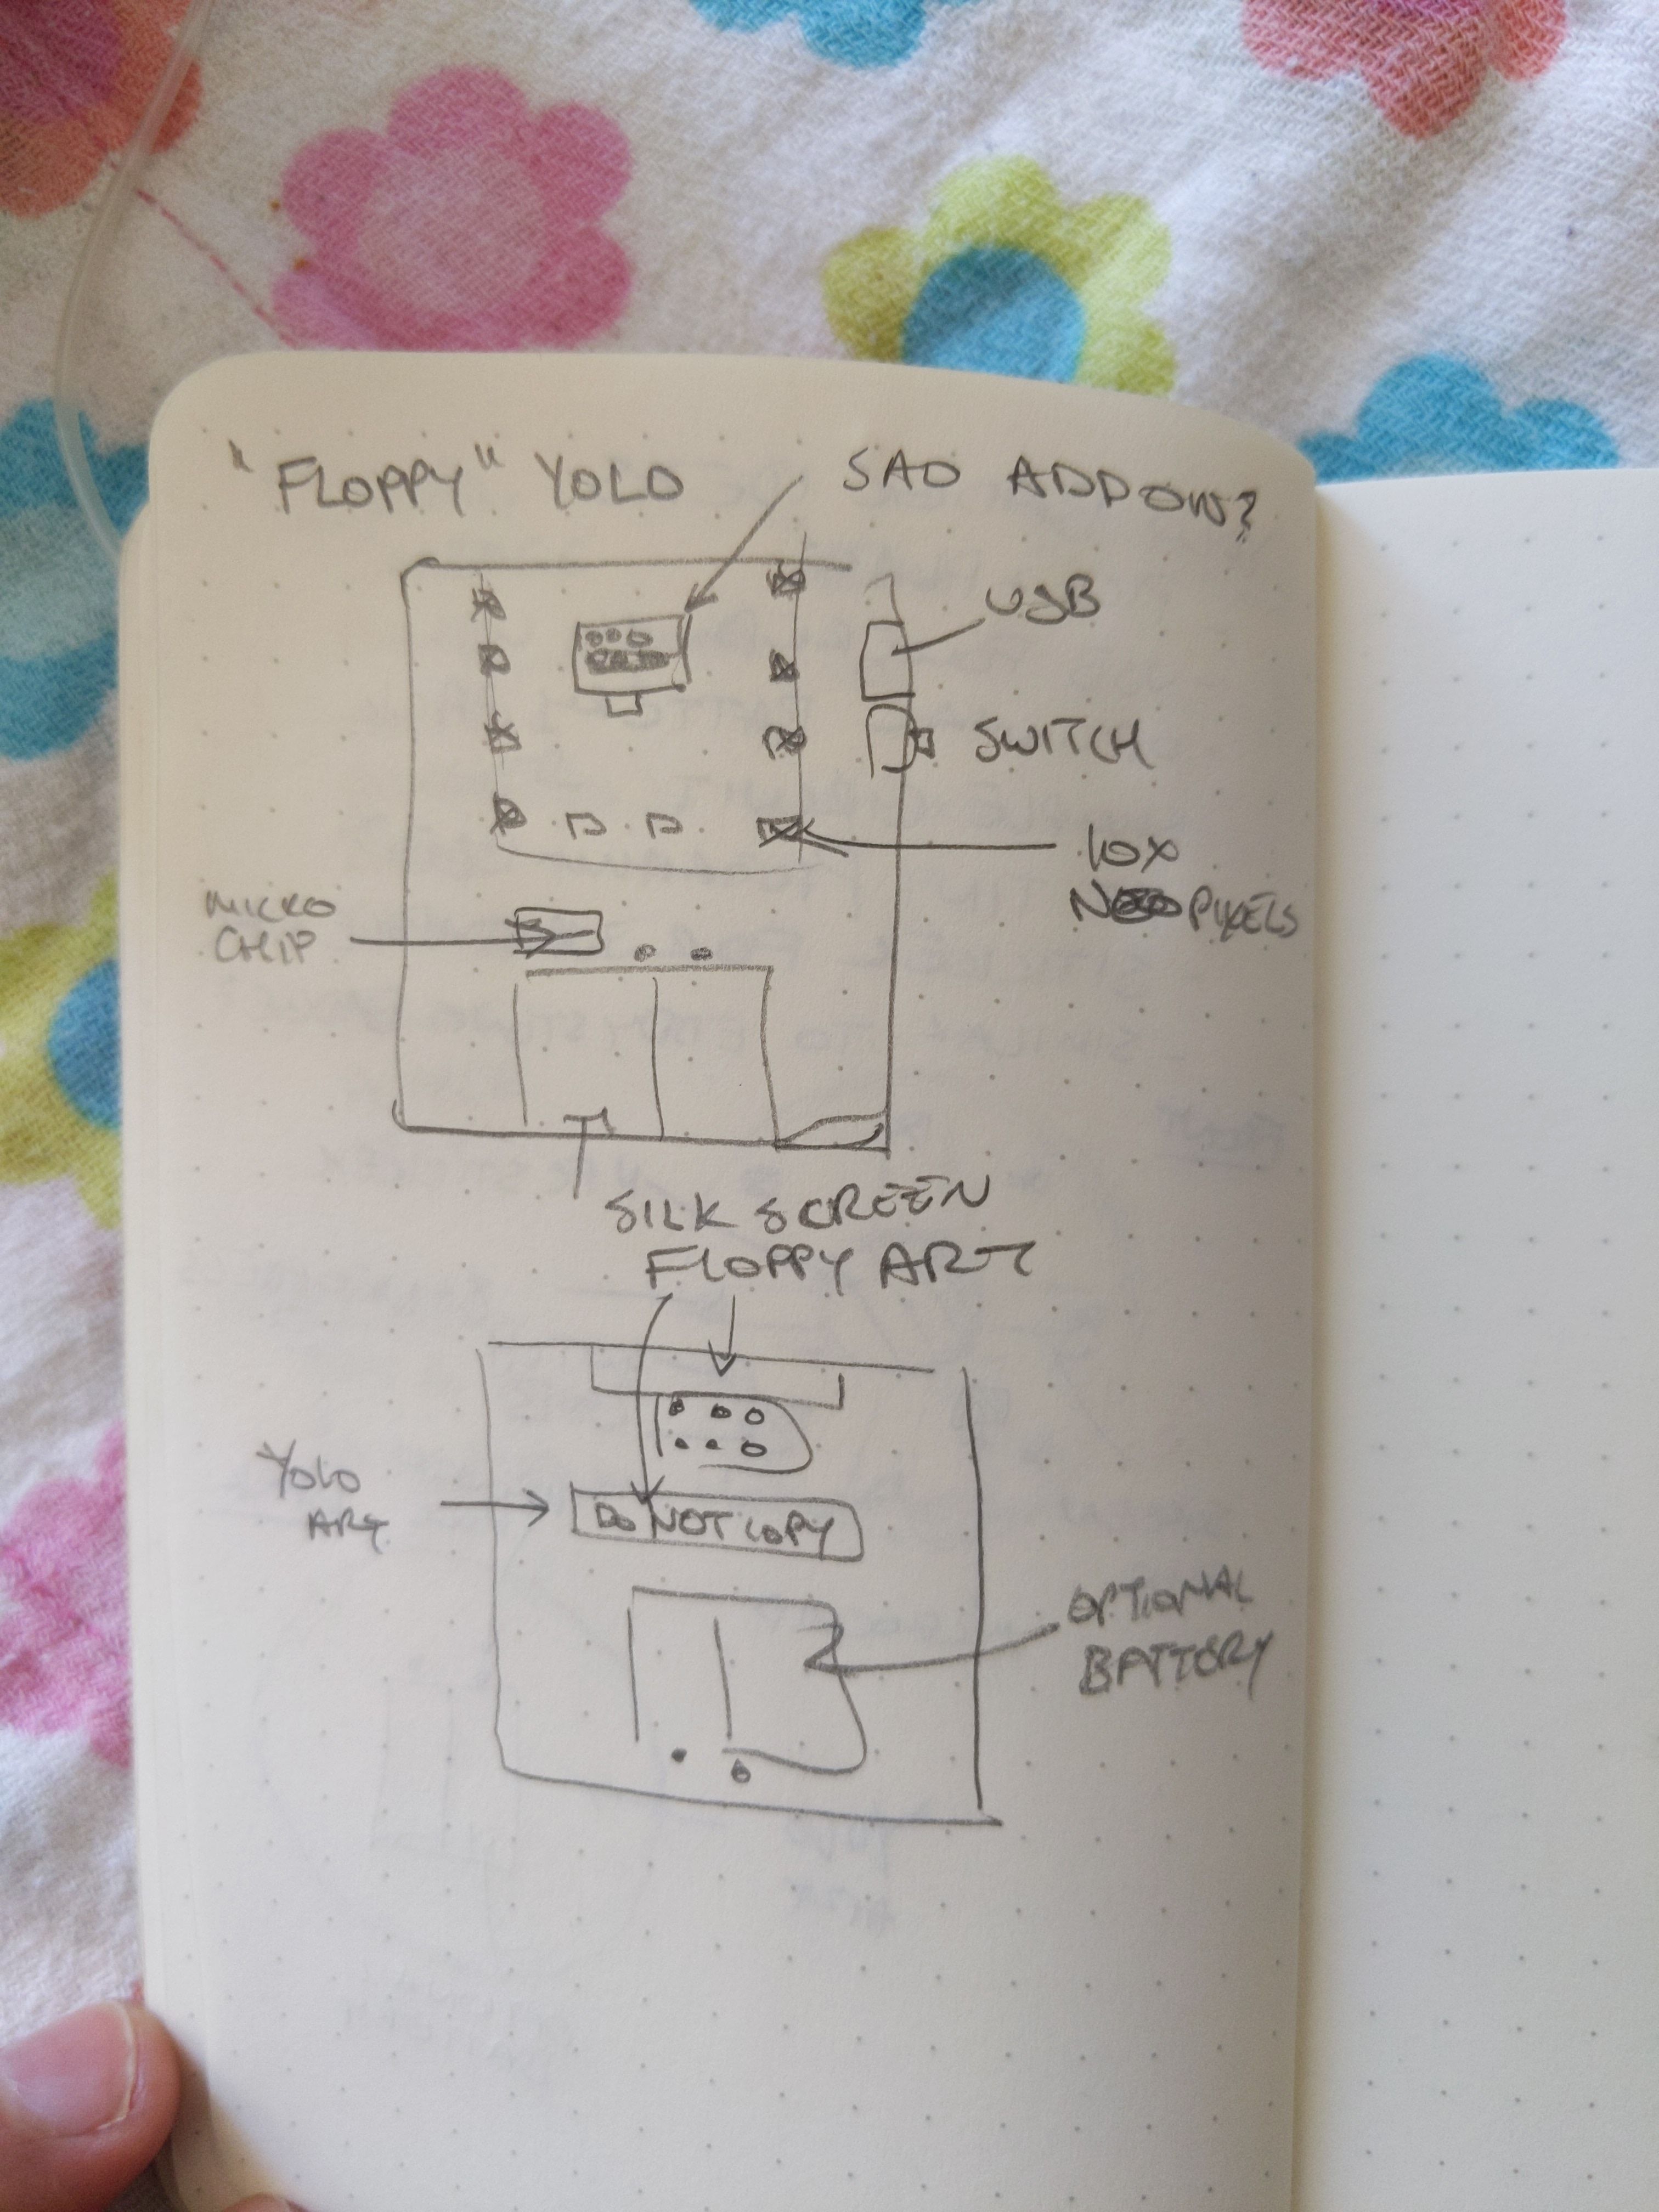 "FLOPPY" YOLO
SAO ADD ON?
USB
SWITCH
10X
NEOPIXELS
MICRO
CHIP
SILK SCREEN
FLOPPY ART
YOLO
ART
DO NOT COPY
OPTIONAL
BATTERY